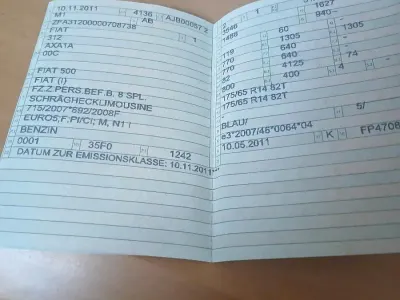 10.11.2011 4136 AJB00057 2
M1 AB
ZFA3120000
FIAT 1
312
AXATA
00C
FIAT 500
FIAT (I)
FZ.Z.PERS.BEF.B. 8 SPL.
SCHRÄGHECKLIMOUSINE
715/2007*692/2008F
EURO5,F,PI/CI; M, N1 I
BENZIN
0001 35F0 1242
DATUM ZUR EMISSIONSKLASSE: 10.11.2011**
3546 1 1627
1488 940-
60 1305
119 640 1305
770 800
770 4125 74
82 400 4
175/65 R14 82T
175/65 R14 82T
-
-
BLAU/ 5/
e3*2007/46*0064*04
10.05.2011 K FP4708